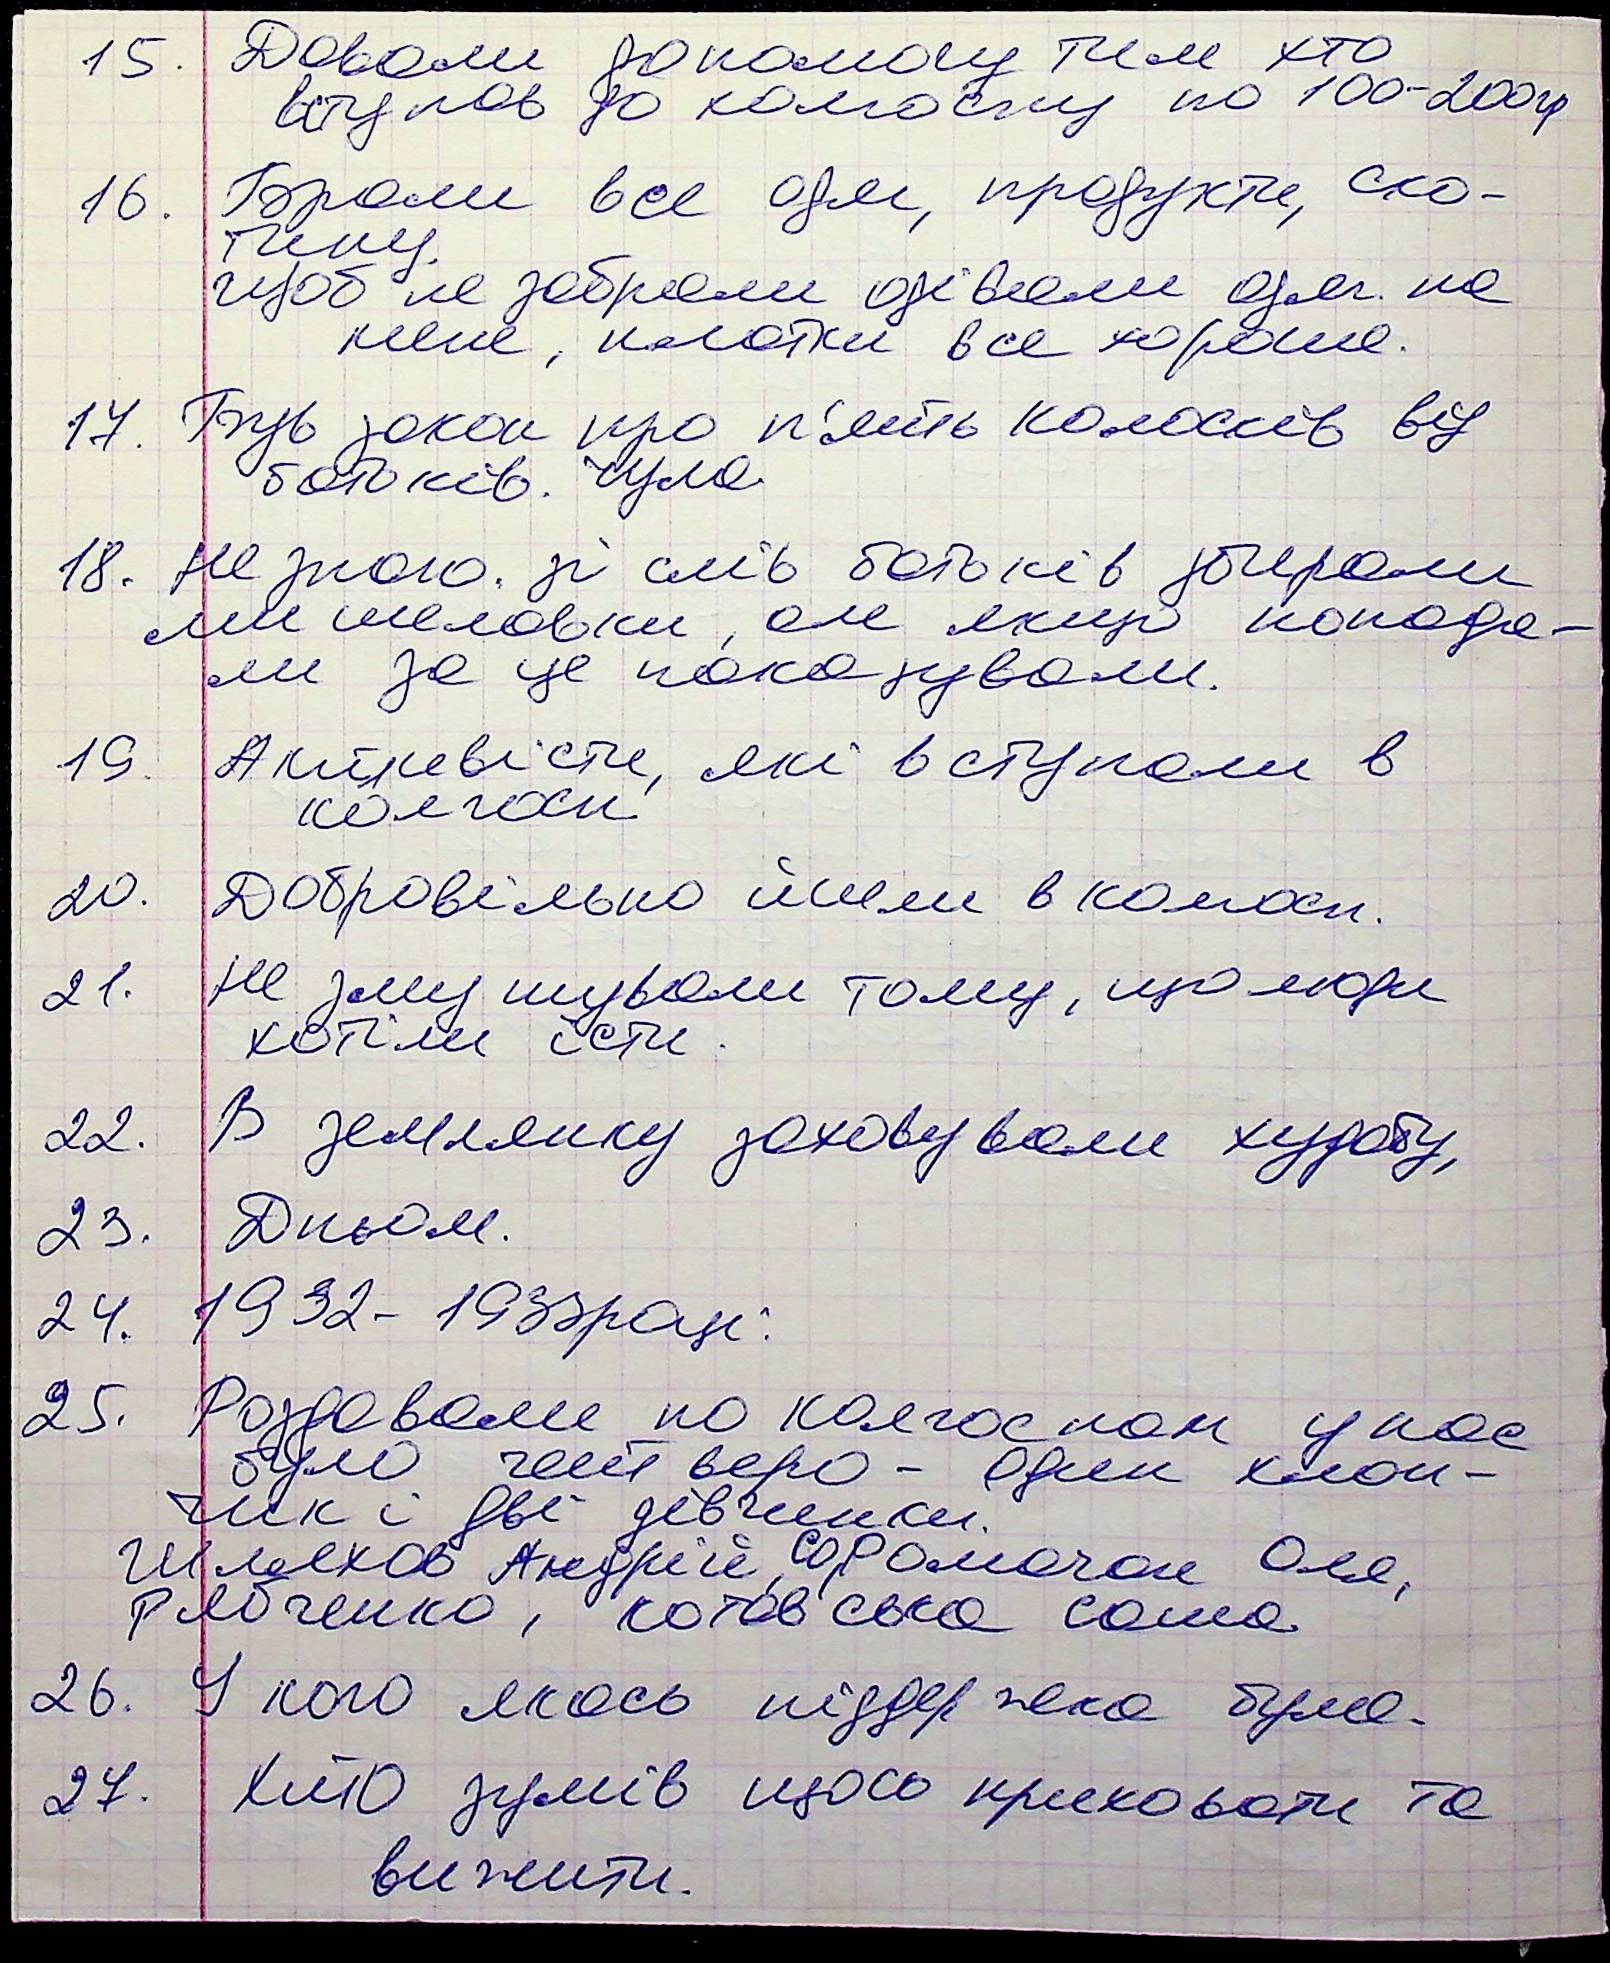 15. Давали допомогу тим хто
вступав до колгоспу по 100-200гр
16. Брали все одяг, продукти, ско-
тину.
щоб не забрали одівали одяг на
мене, платки все хороше.
17. Був закон про п'ять колосків від
батьків. чула.
18. Не знаю. зі слів батьків збирали
ми шеловки, але якщо попада-
ли за це показували.
19. Активісти, які вступали в
колгосп.
20. Добровільно йшли в колгосп.
21. Не змушували тому, що люди
хотіли їсти.
22. В землянку заховували худобу,
23. Дньом.
24. 1932-1933 році.
25. Роздавали по колгоспам у нас
було четверо - один хлоп-
чик і дві дівчинки.
Шляхов Андрій, Соромачан Оля,
Рябченко, котовська Саша.
26. У кого якась піддержка була.
27. Хто зумів щось приховати та
вижити.